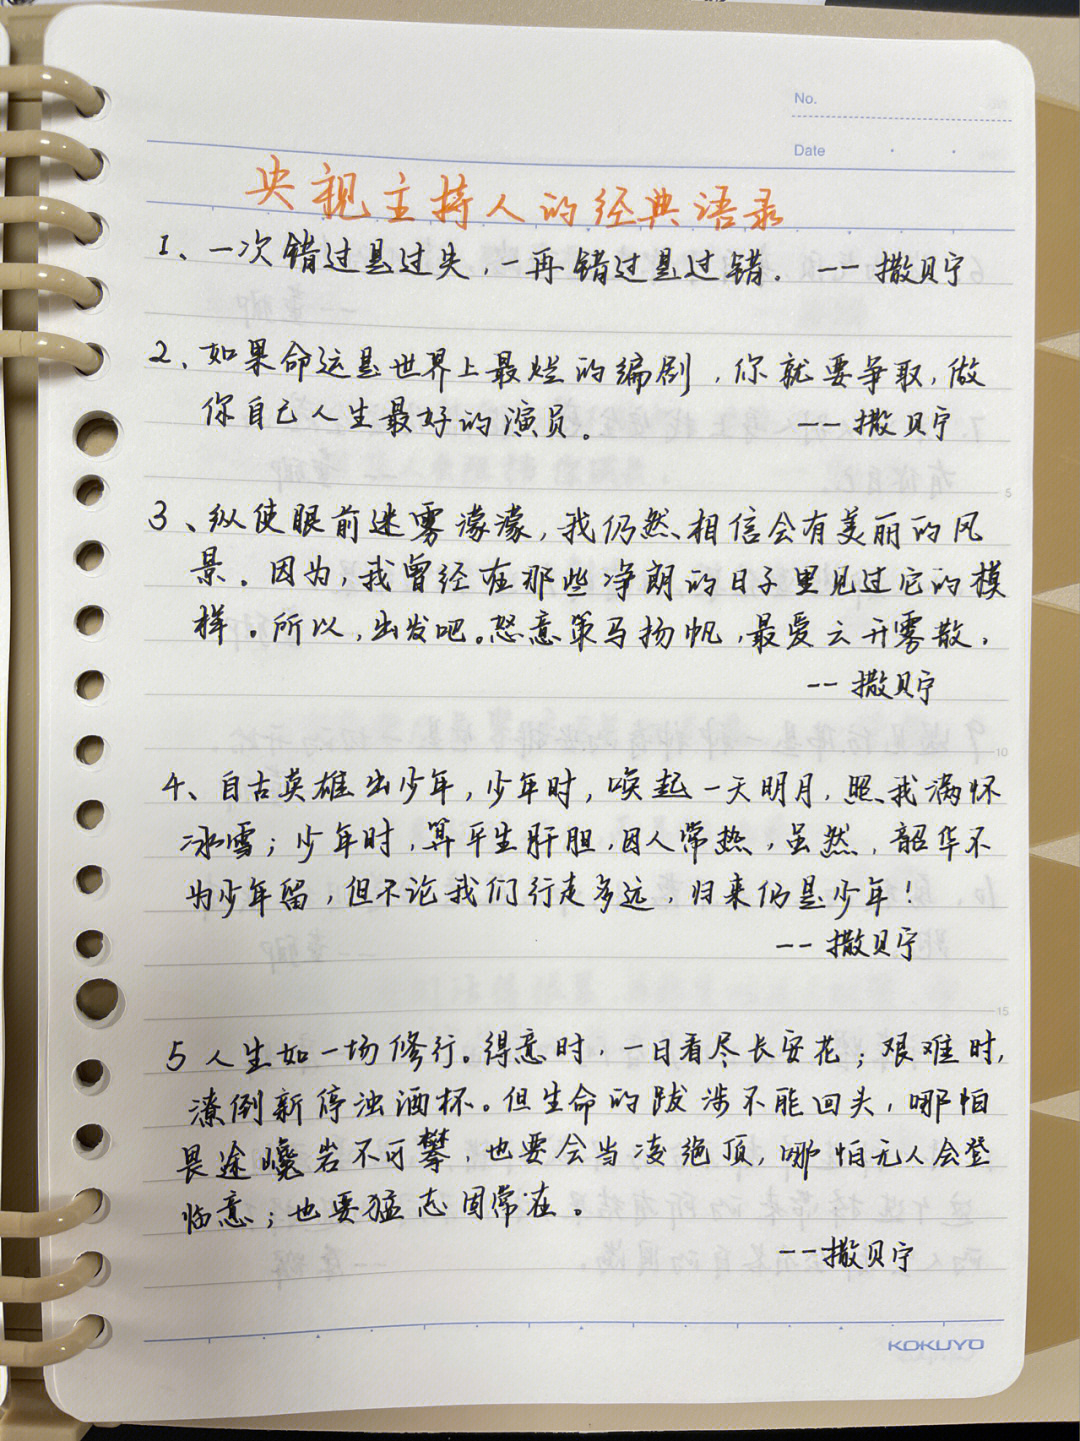 No.
Date
央视主持人的经典语录
1、一次错过是过失，一再错过是过错. -- 撒贝宁
2、如果命运是世界上最烂的编剧，你就要争取，做
你自己人生最好的演员。 -- 撒贝宁
3、纵使眼前迷雾濛濛，我仍然相信会有美丽的风
景。因为，我曾经在那些净朗的日子里见过它的模
样。所以，出发吧。怒意策马扬帆，最爱云开雾散.
-- 撒贝宁
4、自古英雄出少年，少年时，唤起一天明月，照我满怀
冰雪；少年时，算平生肝胆，因人常热，虽然，韶华不
为少年留，但不论我们行走多远，归来仍是少年！
-- 撒贝宁
5 人生如一场修行。得意时，一日看尽长安花；艰难时,
潦倒新停浊酒杯。但生命的跋涉不能回头，哪怕
畏途巉岩不可攀，也要会当凌绝顶，哪怕无人会登
临意；也要猛志固常在。
-- 撒贝宁
5
10
15
KOKUYO